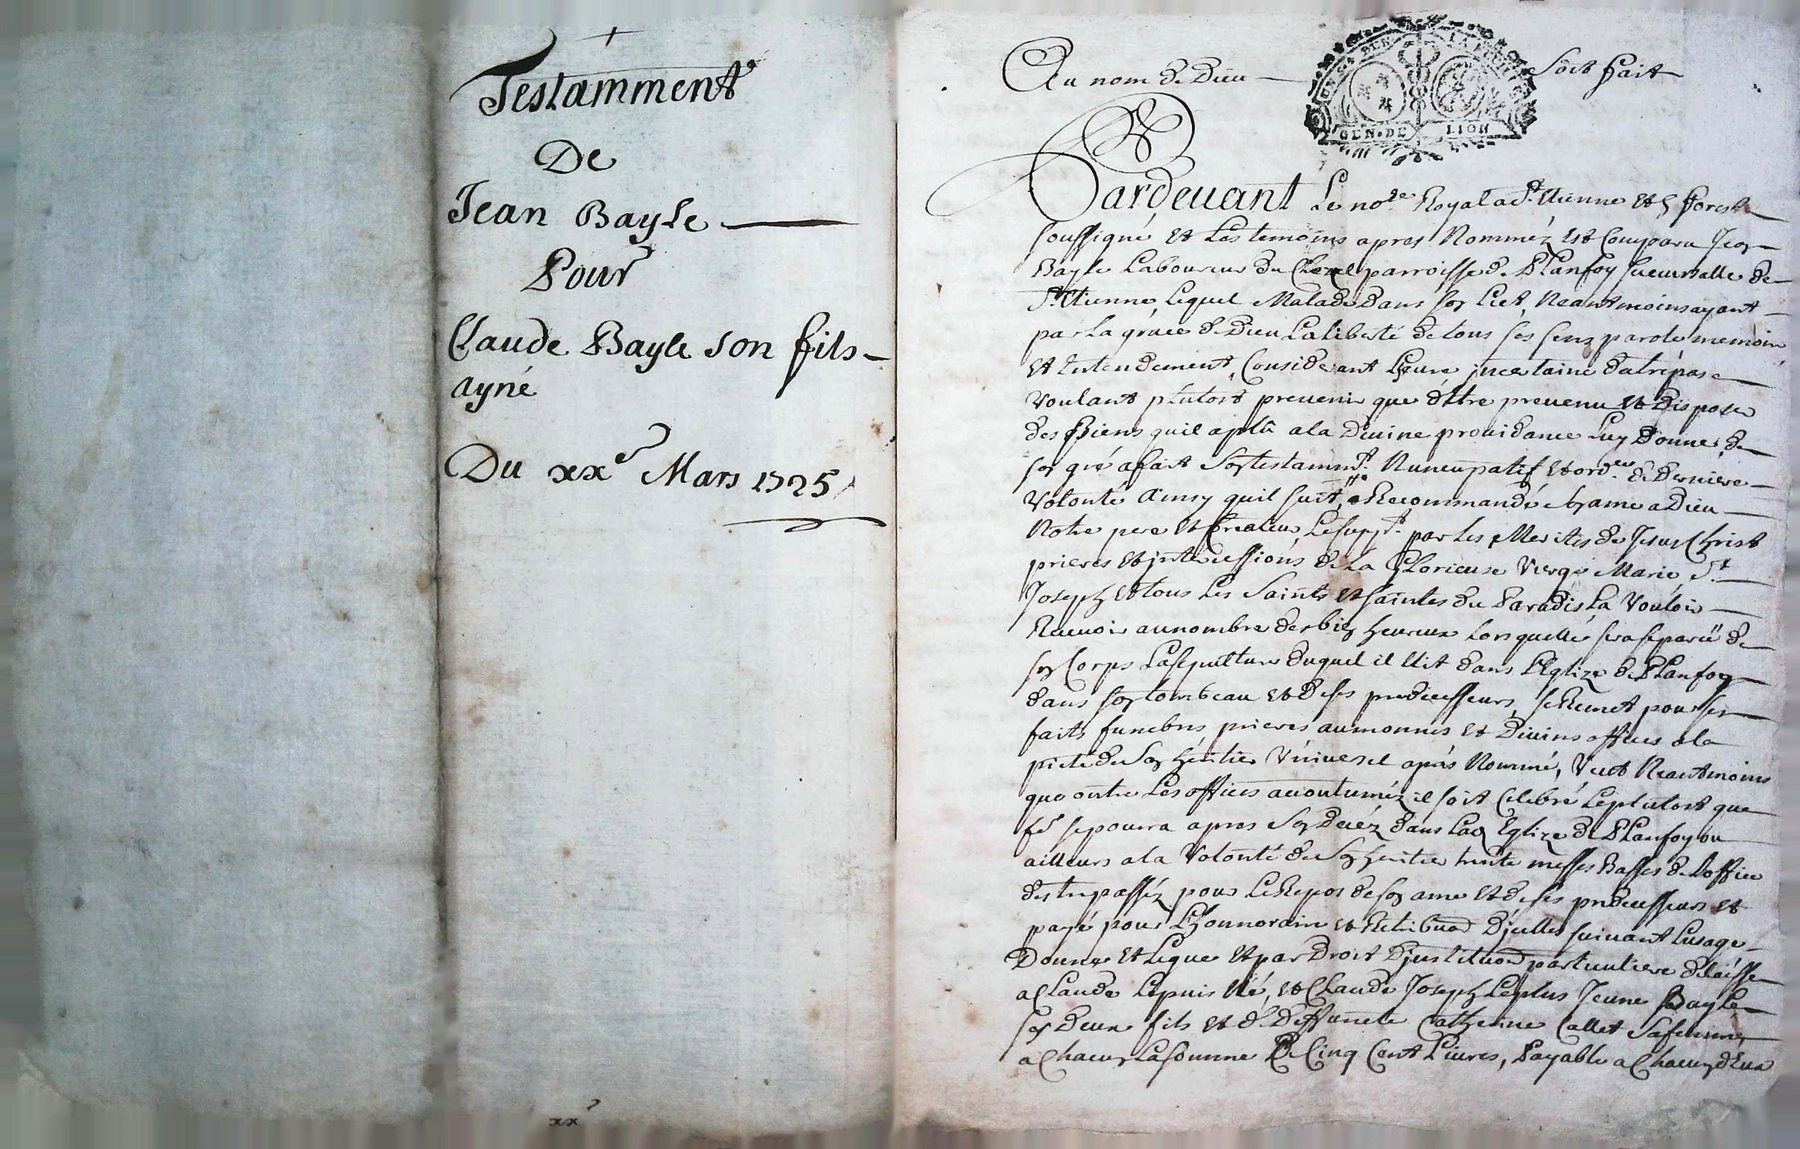 Testamment
De
Jean Bayle
Pour
Claude Bayle son fils
ayné
Du xxe Mars 1725
xxe
Au nom de Dieu Soit fait
GEN. DE LION
Pardevant Le nore Royal a St. Etienne et forest
soussigné et Les temoins apres Nommés Est Comparu Jean
Bayle Laboureur du parroisse de Planfoy sucursalle de
St. Etienne, Lequel Malade dans son Lict, Neantmoins ayant
par La grace de Dieu La liberté de tous ses sens parole memoire
et Entendement, Considerant Lheure incertaine du trepas
Voulant plutost prevenir que d'Etre prevenu et Disposer
des Biens quil a plû a la Divine providance Luy Donner, de
son gré a fait Son testammt. Nuncupatif et ordre de Derniere
Volonté Ainsy quil suit, a Recommandé son ame a Dieu
Notre pere et Createur, Le supt. par les Merites de Jesus Christ
prieres et intercessions de La Glorieuse Vierge Marie, St.
Joseph et tous Les Saints et saintes du Paradis La Vouloir
Recevoir au nombre des bien heureux Lors quelle sera separée de
son Corps La sepulture duquel il Elit dans L'Eglize de Planfoy
dans son tombeau et de ses predecesseurs, se Remet pour ses
faits funebres prieres aumonnes et Divins offices a la
pieté de Son héritier Universel après Nommé, Veut Neantmoins
que outre Les offices accoutuméz il soit Celebré Le plutost que
fe. se pourra apres Son Decéz dans Lad Eglize de Planfoy ou
ailleurs a la Volonté de Son heritier trente messes Basses de Loffice
des trepasséz pour Le Repos de son ame et de ses predecesseurs et
payé pour L'honnoraire et Retribuon D'icelles suivant Lusage
Donne et Legue et par Droit D'institution particuliere Delaisse
a Claude Le puis Né, et Claude Joseph Le plus Jeune Bayle
ses deux fils et de Deffuncte Catherine Callet sa femme
a Chacun La somme De Cinq Cent Livres, Payable a Chacun d'Eux